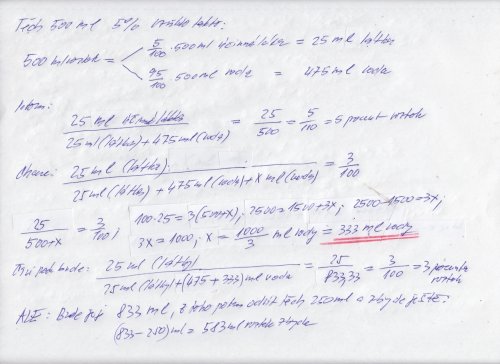 Těch 500 ml 5% roztoku
500 ml roztok = 5/100 · 500 ml účinná látka = 25 ml látka
95/100 · 500 ml voda = 475 ml voda
25 ml látka / 25 ml (látka) + 475 ml (voda) = 25/500 = 5/110 = 5 procent roztok
Chceme: 25 ml (látka) / 25 ml (látka) + 475 ml (voda) + x ml (voda) = 3/100
25/500+x = 3/100; 100·25 = 3(500+x); 2500 = 1500+3x; 2500-1500 = 3x;
3x = 1000; x = 1000/3 ml vody = 333 ml vody
bude: 25 ml (látka) / 25 ml (látka) + (475 + 333) ml voda = 25/833,33 = 3/100 = 3 procenta roztok
ALE: Bude její 833 ml, z toho potom odlít těch 250 ml a zbyde ještě:
(833-250) ml = 583 ml roztoku zbyde